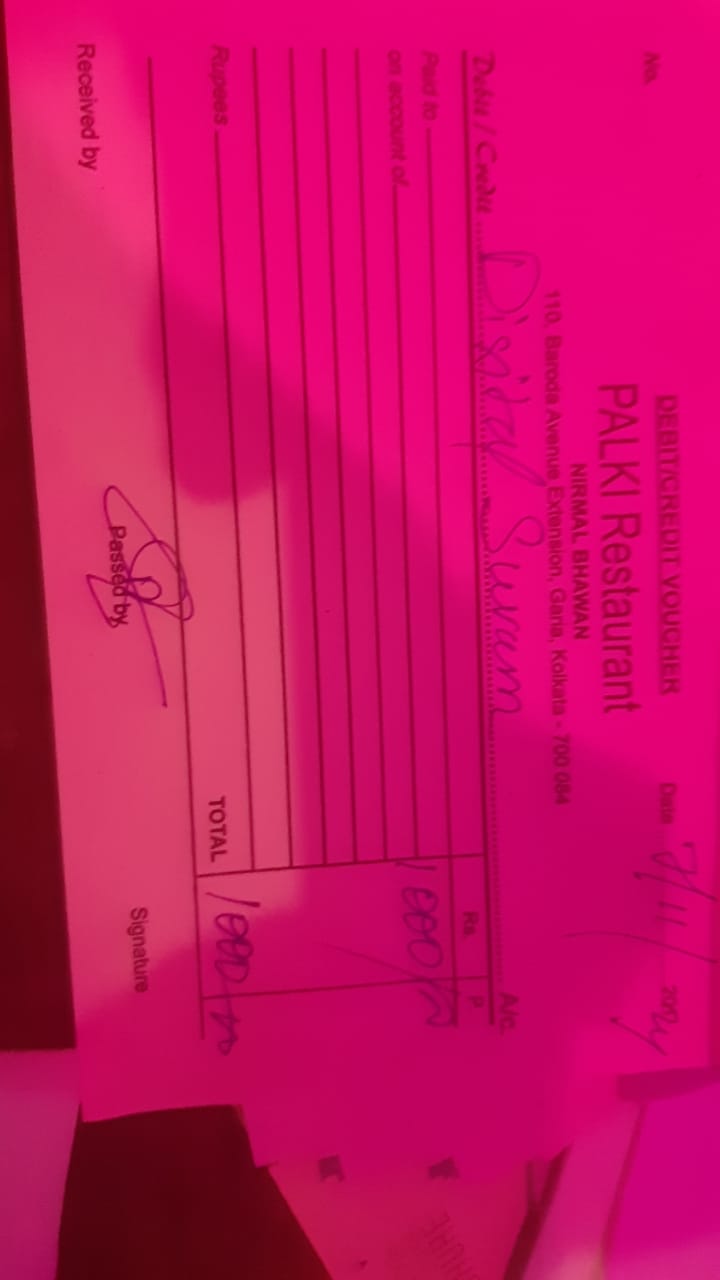 DEBIT/CREDIT VOUCHER
No. Date 7/11/2024
PALKI Restaurant
NIRMAL BHAWAN
110, Baroda Avenue Extension, Garia, Kolkata - 700 084
Debit / Credit Digital Suvam A/c.
Rs. P
Paid to 1000/-
on account of
Rupees TOTAL 1000/-
Received by Passed by Signature